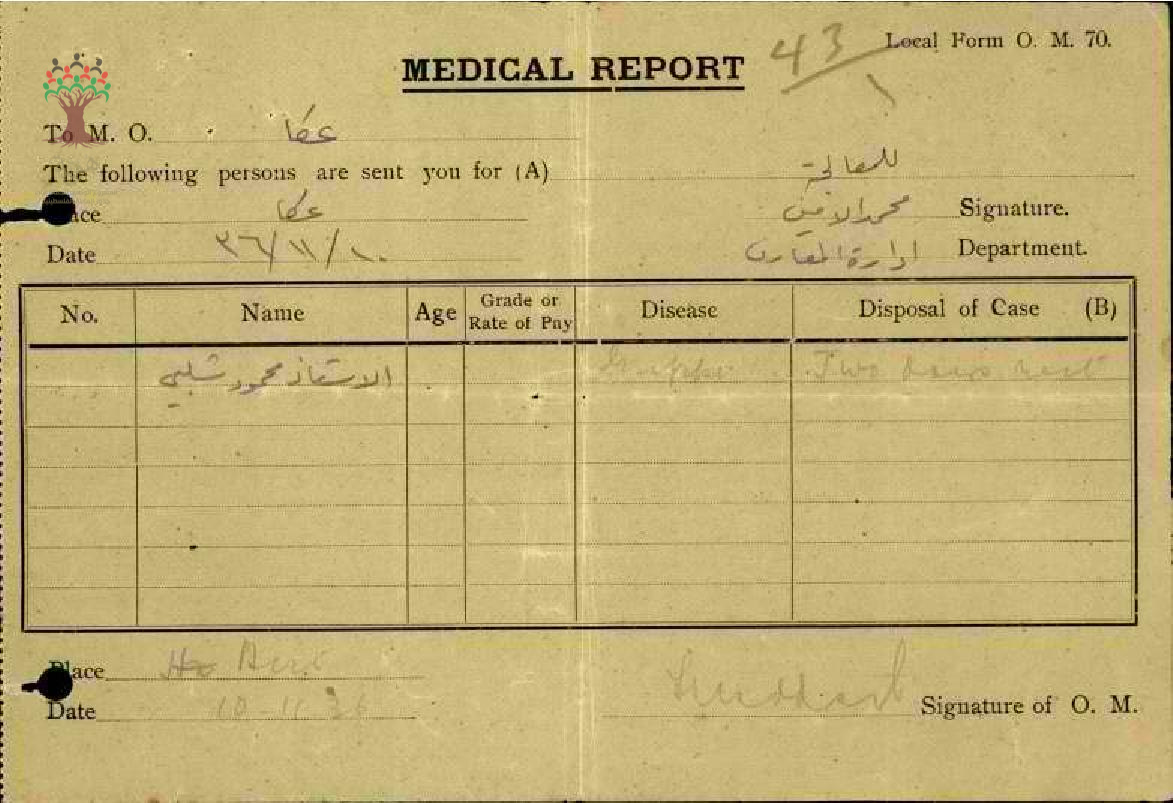 Local Form O. M. 70.
43/1
MEDICAL REPORT
To M. O. عكا
The following persons are sent you for (A) للمعالجة
Place عكا محمد الامين Signature.
Date ٣٦/١١/١٠ ادارة المعارف Department.
No. Name Age Grade or Rate of Pay Disease Disposal of Case (B)
الاستاذ محمود شلبي Grippe Two days rest
Place Acre
Date 10-11-36 Signature of O. M.